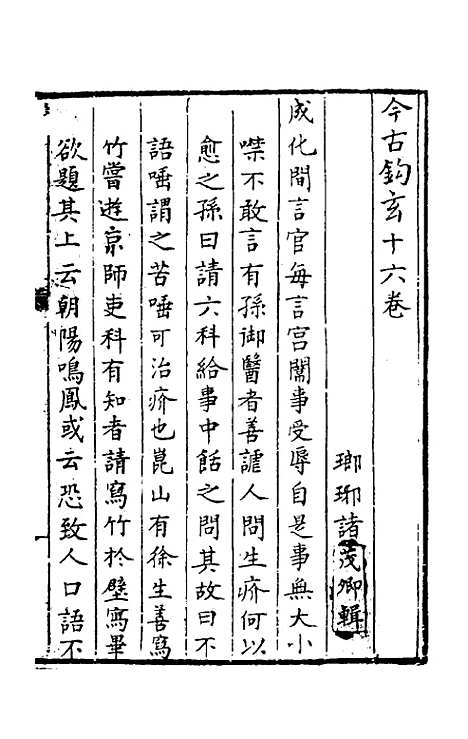 今古鈎玄十六卷
瑯琊諸茂卿輯
成化間言官每言宮闈事受辱自是事無大小
噤不敢言有孫御醫者善謔人問生疥何以
愈之孫曰請六科給事中餂之問其故曰不
語唾謂之苦唾可治疥也崑山有徐生善寫
竹嘗遊京師吏科有知者請寫竹於壁寫畢
欲題其上云朝陽鳴鳳或云恐致人口語不